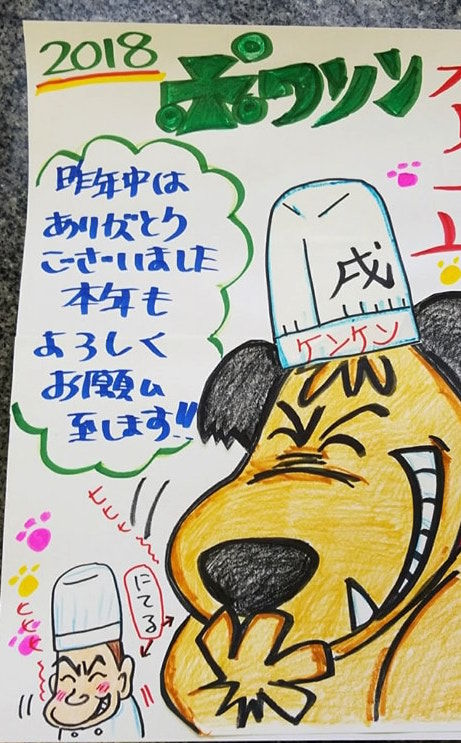 2018
ポワソン
昨年中は
ありがとう
ございました
本年も
よろしく
お願い
至します!!
戌
ケンケン
にてる